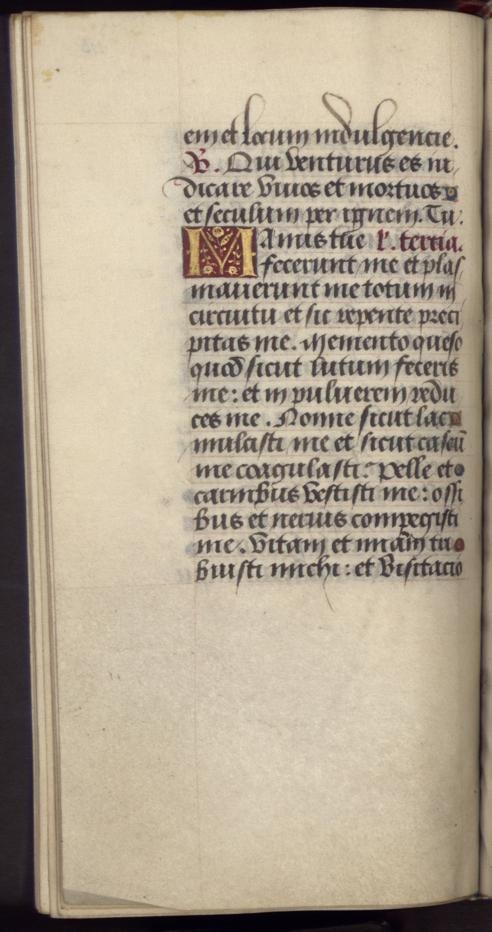 em et locum indulgencie.
R. Qui venturus es iu
dicare vivos et mortuos
et seculum per ignem. Tu.
Manus tue l. tercia.
fecerunt me et plas
maverunt me totum in
circuitu et sic repente preci
pitas me. Memento queso
quod sicut lutum feceris
me: et in pulverem redu
ces me. Nonne sicut lac
mulcisti me et sicut caseū
me coagulasti: Pelle et
carnibus vestisti me: ossi
bus et nervis compegisti
me. Vitam et miām tri
buisti michi: et visitacio